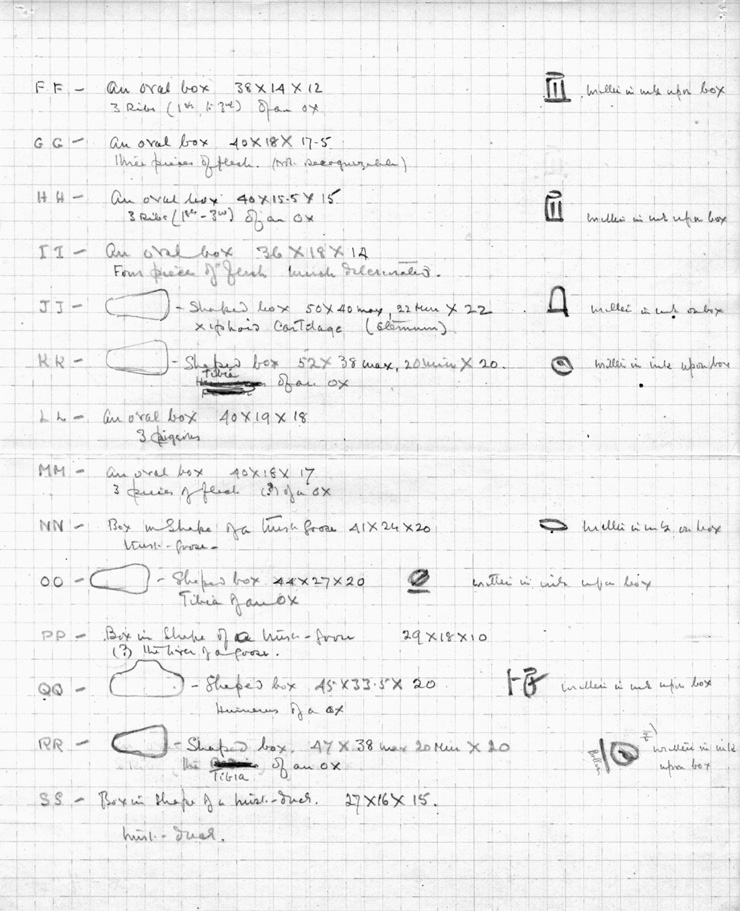 FF - An oval box 38 X 14 X 12 written in ink upon box
3 Ribs (1st to 3rd) of an OX
GG - An oval box 40 X 18 X 17.5
three pieces of flesh. (Not recognizable)
HH - An oval box 40 X 15.5 X 15 written in ink upon box
3 Ribs (1st - 3rd) of an OX
II - An oval box 36 X 18 X 14
Four pieces of flesh much
JJ - - Shaped box 50 X 40 max, 22 Min X 22 written in ink on box
xiphoid Cartilage (
KK - - Shaped box 52 X 38 max, 20 min X 20. written in ink upon box
Tibia
of an OX
LL - An oval box 40 X 19 X 18
3 pigeons
MM - An oval box 40 X 18 X 17
3 pieces of flesh (?) of a OX
NN - Box in Shape of a truss-goose 41 X 24 X 20 written in ink on box
truss-goose -
OO - - Shaped box 44 X 27 X 20 written in ink upon box
Tibia of an OX
PP - Box in Shape of a truss-goose 29 X 18 X 10
(?) the liver of a goose.
QQ - - Shaped box 45 X 33.5 X 20 written in ink upon box
Humerus of a OX
RR - - Shaped box, 47 X 38 max 20 Min X 20 written in ink
upon box
the of an OX
Tibia
SS - Box in shape of a truss-duck. 27 X 16 X 15.
truss-duck.